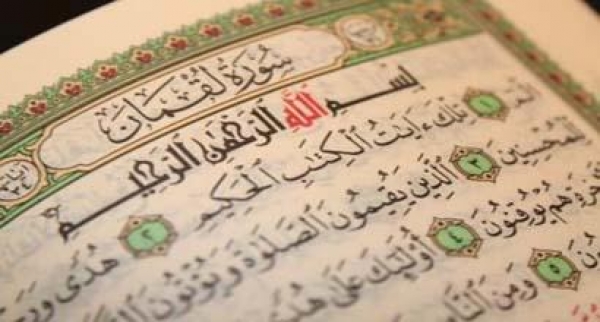 سُورَةُ لُقْمَان
بِسْمِ اللَّهِ الرَّحْمَٰنِ الرَّحِيمِ
الٓمٓ ١ تِلْكَ ءَايَٰتُ ٱلْكِتَٰبِ ٱلْحَكِيمِ ٢ هُدًى وَرَ
لِّلْمُحْسِنِينَ ٣ ٱلَّذِينَ يُقِيمُونَ ٱلصَّلَوٰةَ وَيُؤْتُونَ
هُمْ يُوقِنُونَ ٤ أُو۟لَٰٓئِكَ عَلَىٰ هُدًى
٥ وَمِنَ ٱلنَّاسِ